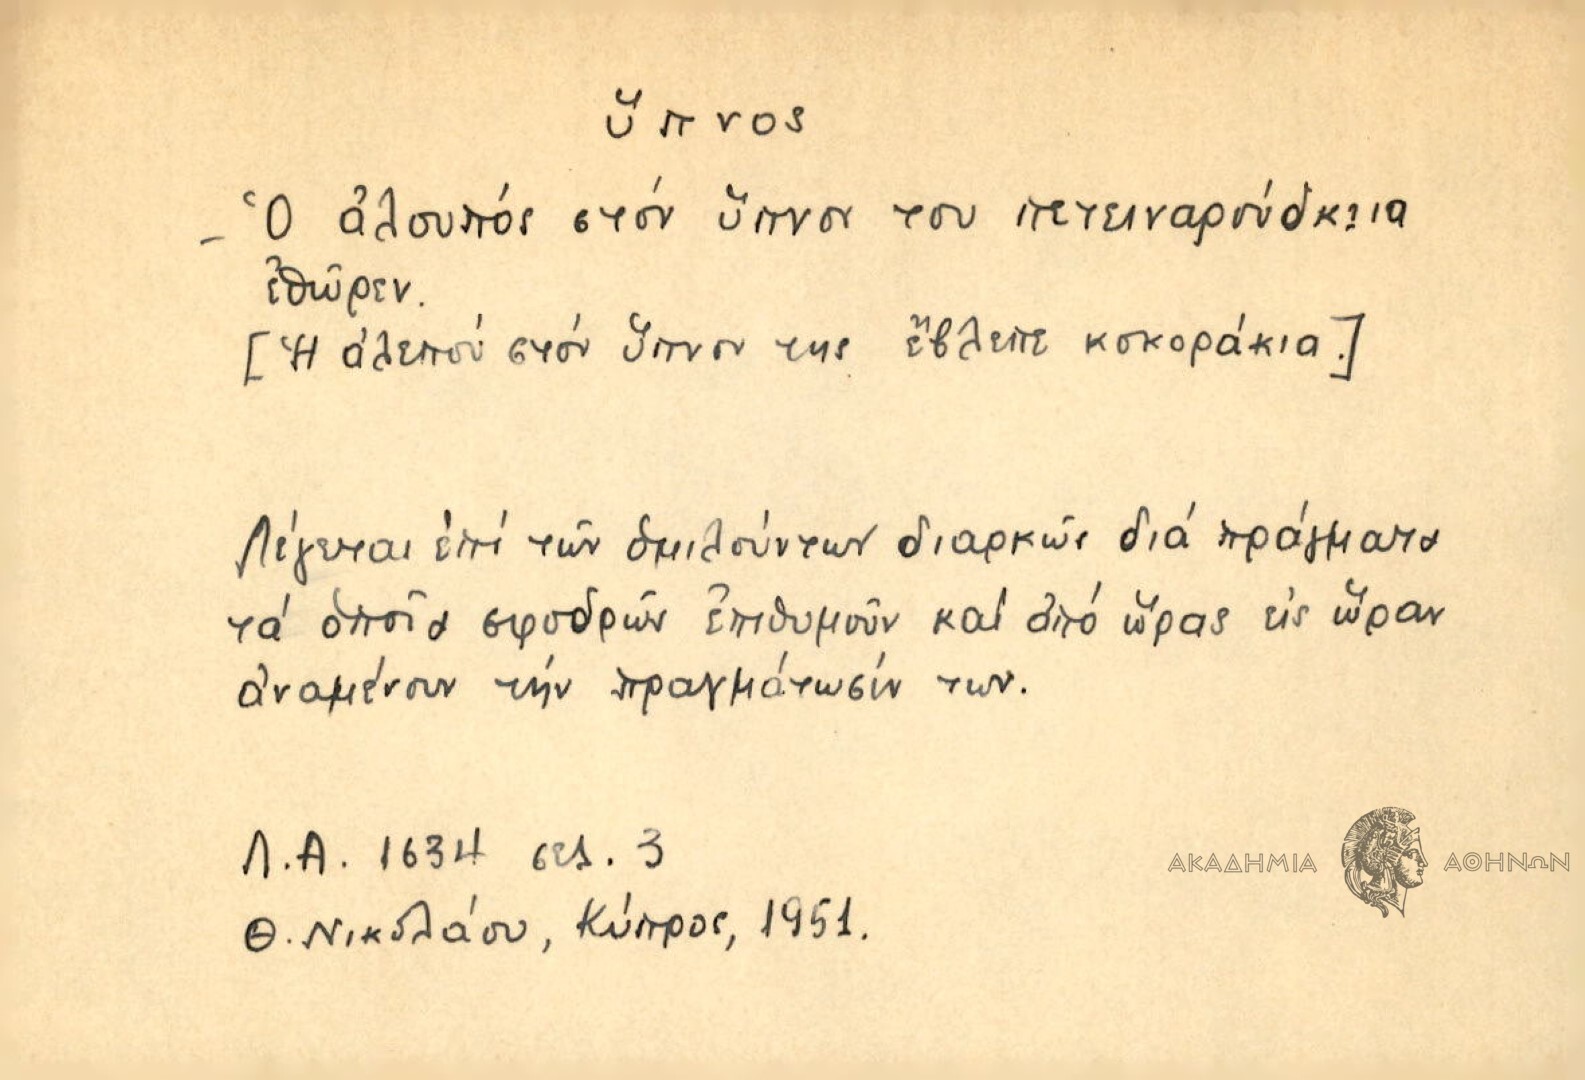 ὕπνος
- Ὁ ἀλουπός στόν ὕπνον του πετειναρούδκ̮ια
ἐθῶρεν.
[Ἡ ἀλεπού στόν ὕπνον της ἔβλεπε κοκοράκια.]
Λέγεται ἐπί τῶν ὁμιλούντων διαρκῶς διά πράγματα
τά ὁποῖα σφοδρῶς ἐπιθυμοῦν καί ἀπό ὥρας εἰς ὥραν
ἀναμένουν τήν πραγμάτωσίν των.
Λ.Α. 1634 σελ. 3
Θ. Νικολάου, Κύπρος, 1951.
ΑΚΑΔΗΜΙΑ ΑΘΗΝΩΝ